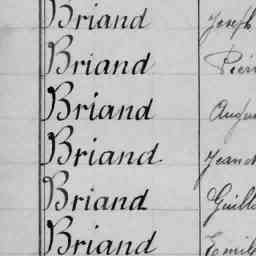 Briand Joseph
Briand Pierr
Briand Augu
Briand. Jean
Briand Guill
Briand Emil